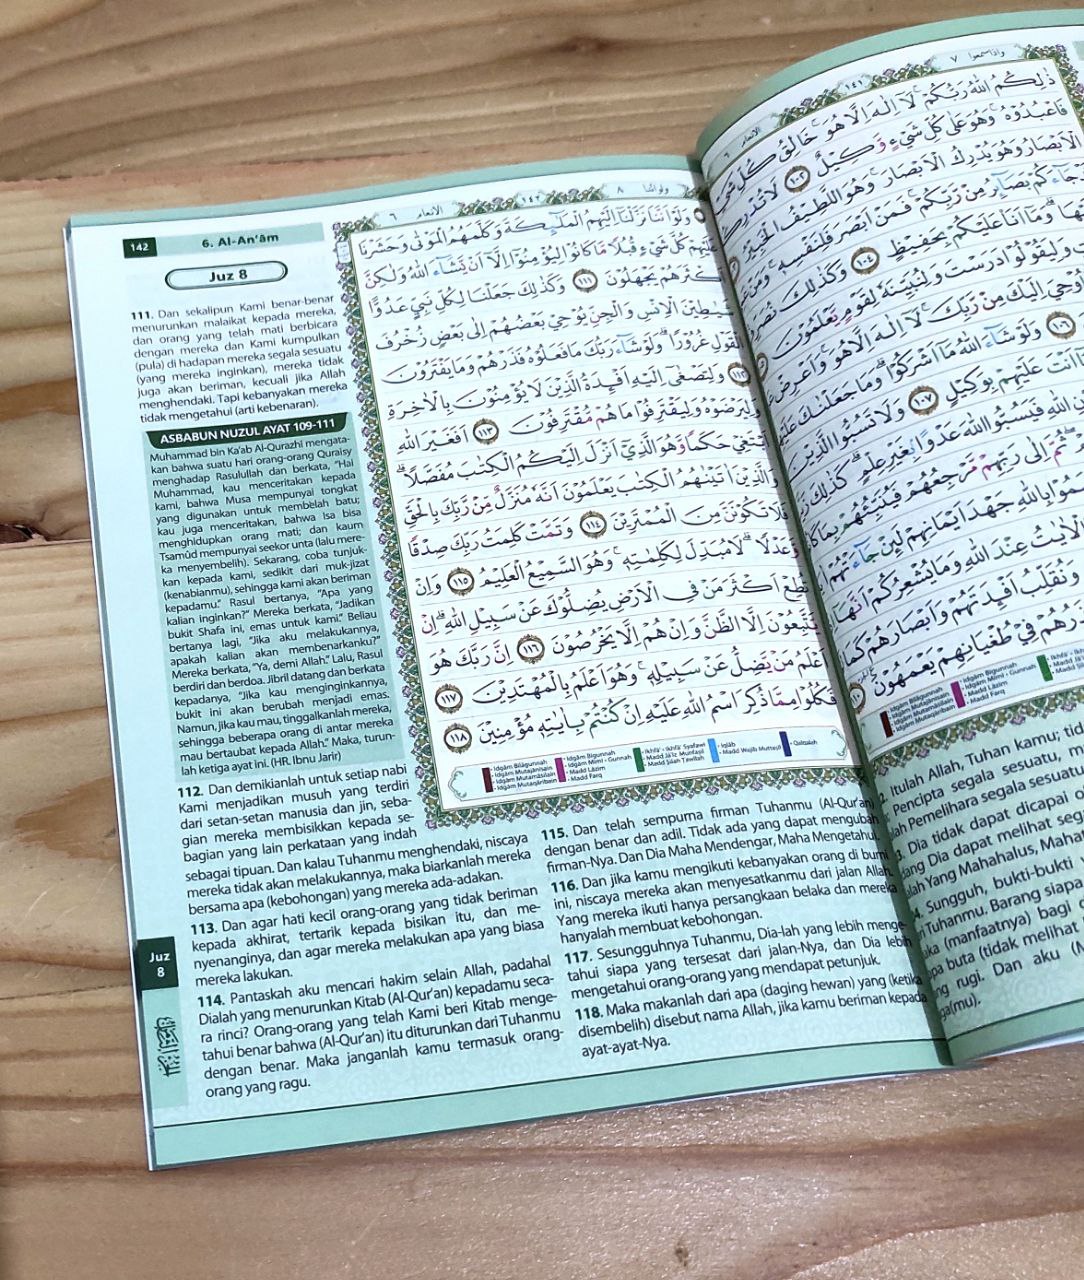 142
6. Al-An'âm
Juz 8
111. Dan sekalipun Kami benar-benar
menurunkan malaikat kepada mereka,
dan orang yang telah mati berbicara
dengan mereka dan Kami kumpulkan
(pula) di hadapan mereka segala sesuatu
(yang mereka inginkan), mereka tidak
juga akan beriman, kecuali jika Allah
menghendaki. Tapi kebanyakan mereka
tidak mengetahui (arti kebenaran).
ASBABUN NUZUL AYAT 109-111
Muhammad bin Ka'ab Al-Qurazhî mengata-
kan bahwa suatu hari orang-orang Quraisy
menghadap Rasulullah dan berkata, "Hai
Muhammad, kau menceritakan kepada
kami, bahwa Musa mempunyai tongkat
yang digunakan untuk membelah batu;
kau juga menceritakan, bahwa Isa bisa
menghidupkan orang mati; dan kaum
Tsamûd mempunyai seekor unta (lalu mere-
ka menyembelih). Sekarang, coba tunjuk-
kan kepada kami, sedikit dari muk-jizat
(kenabianmu), sehingga kami akan beriman
kepadamu." Rasul bertanya, "Apa yang
kalian inginkan?" Mereka berkata, "Jadikan
bukit Shafa ini, emas untuk kami." Beliau
bertanya lagi, "Jika aku melakukannya,
apakah kalian akan membenarkanku?"
Mereka berkata, "Ya, demi Allah." Lalu, Rasul
berdiri dan berdoa. Jibril datang dan berkata
kepadanya, "Jika kau menginginkannya,
bukit ini akan berubah menjadi emas.
Namun, jika kau mau, tinggalkanlah mereka,
sehingga beberapa orang di antar mereka
mau bertaubat kepada Allah." Maka, turun-
lah ketiga ayat ini. (HR. Ibnu Jarir)
ولواننا ٨ ١٤٢ الانعام ٦
وَلَوْ اَنَّنَا نَزَّلْنَآ اِلَيْهِمُ الْمَلٰۤىِٕكَةَ وَكَلَّمَهُمُ الْمَوْتٰى وَحَشَرْنَا
عَلَيْهِمْ كُلَّ شَيْءٍ قُبُلًا مَّا كَانُوْا لِيُؤْمِنُوْٓا اِلَّآ اَنْ يَّشَاۤءَ اللّٰهُ وَلٰكِنَّ
اَكْثَرَهُمْ يَجْهَلُوْنَ ١١١ وَكَذٰلِكَ جَعَلْنَا لِكُلِّ نَبِيٍّ عَدُوًّا
شَيٰطِيْنَ الْاِنْسِ وَالْجِنِّ يُوْحِيْ بَعْضُهُمْ اِلٰى بَعْضٍ زُخْرُفَ
الْقَوْلِ غُرُوْرًا ۗ وَلَوْ شَاۤءَ رَبُّكَ مَا فَعَلُوْهُ فَذَرْهُمْ وَمَا يَفْتَرُوْنَ
١١٢ وَلِتَصْغٰٓى اِلَيْهِ اَفْـِٕدَةُ الَّذِيْنَ لَا يُؤْمِنُوْنَ بِالْاٰخِرَةِ
وَلِيَرْضَوْهُ وَلِيَقْتَرِفُوْا مَا هُمْ مُّقْتَرِفُوْنَ ١١٣ اَفَغَيْرَ اللّٰهِ
اَبْتَغِيْ حَكَمًا وَّهُوَ الَّذِيْٓ اَنْزَلَ اِلَيْكُمُ الْكِتٰبَ مُفَصَّلًا ۗ
وَالَّذِيْنَ اٰتَيْنٰهُمُ الْكِتٰبَ يَعْلَمُوْنَ اَنَّهٗ مُنَزَّلٌ مِّنْ رَّبِّكَ بِالْحَقِّ
فَلَا تَكُوْنَنَّ مِنَ الْمُمْتَرِيْنَ ١١٤ وَتَمَّتْ كَلِمَتُ رَبِّكَ صِدْقًا
وَّعَدْلًا ۗ لَا مُبَدِّلَ لِكَلِمٰتِهٖ ۚ وَهُوَ السَّمِيْعُ الْعَلِيْمُ ١١٥ وَاِنْ
تُطِعْ اَكْثَرَ مَنْ فِى الْاَرْضِ يُضِلُّوْكَ عَنْ سَبِيْلِ اللّٰهِ ۗ اِنْ
يَّتَّبِعُوْنَ اِلَّا الظَّنَّ وَاِنْ هُمْ اِلَّا يَخْرُصُوْنَ ١١٦ اِنَّ رَبَّكَ هُوَ
اَعْلَمُ مَنْ يَّضِلُّ عَنْ سَبِيْلِهٖ ۚ وَهُوَ اَعْلَمُ بِالْمُهْتَدِيْنَ ١١٧
فَكُلُوْا مِمَّا ذُكِرَ اسْمُ اللّٰهِ عَلَيْهِ اِنْ كُنْتُمْ بِاٰيٰتِهٖ مُؤْمِنِيْنَ ١١٨
• Idgâm Bilâgunnah • Idgâm Bigunnah • Ikhfâ' - Ikhfâ' Syafawî • Iqlâb • Qalqalah
• Idgâm Mutajânisain • Idgâm Mîmî - Gunnah • Madd Jâ'iz Munfasil • Madd Wajib Muttasil
• Idgâm Mutamâsilain • Madd Lâzim • Madd Silah Tawîlah
• Idgâm Mutaqâribain • Madd Farq
112. Dan demikianlah untuk setiap nabi
Kami menjadikan musuh yang terdiri
dari setan-setan manusia dan jin, seba-
gian mereka membisikkan kepada se-
bagian yang lain perkataan yang indah
sebagai tipuan. Dan kalau Tuhanmu menghendaki, niscaya
mereka tidak akan melakukannya, maka biarkanlah mereka
bersama apa (kebohongan) yang mereka ada-adakan.
113. Dan agar hati kecil orang-orang yang tidak beriman
kepada akhirat, tertarik kepada bisikan itu, dan me-
nyenanginya, dan agar mereka melakukan apa yang biasa
mereka lakukan.
114. Pantaskah aku mencari hakim selain Allah, padahal
Dialah yang menurunkan Kitab (Al-Qur'an) kepadamu seca-
ra rinci? Orang-orang yang telah Kami beri Kitab menge-
tahui benar bahwa (Al-Qur'an) itu diturunkan dari Tuhanmu
dengan benar. Maka janganlah kamu termasuk orang-
orang yang ragu.
115. Dan telah sempurna firman Tuhanmu (Al-Qur'an)
dengan benar dan adil. Tidak ada yang dapat mengubah
firman-Nya. Dan Dia Maha Mendengar, Maha Mengetahui.
116. Dan jika kamu mengikuti kebanyakan orang di bumi
ini, niscaya mereka akan menyesatkanmu dari jalan Allah.
Yang mereka ikuti hanya persangkaan belaka dan mereka
hanyalah membuat kebohongan.
117. Sesungguhnya Tuhanmu, Dia-lah yang lebih menge-
tahui siapa yang tersesat dari jalan-Nya, dan Dia lebih
mengetahui orang-orang yang mendapat petunjuk.
118. Maka makanlah dari apa (daging hewan) yang (ketika
disembelih) disebut nama Allah, jika kamu beriman kepada
ayat-ayat-Nya.
Juz
8
واذاسمعوا ٧ ١٤١ الانعام ٦
ذٰلِكُمُ اللّٰهُ رَبُّكُمْ ۚ لَآ اِلٰهَ اِلَّا هُوَ ۚ خَالِقُ كُلِّ شَيْءٍ
فَاعْبُدُوْهُ ۚ وَهُوَ عَلٰى كُلِّ شَيْءٍ وَّكِيْلٌ ١٠٢ لَا تُدْرِكُهُ
الْاَبْصَارُ وَهُوَ يُدْرِكُ الْاَبْصَارَ ۚ وَهُوَ اللَّطِيْفُ الْخَبِيْرُ
جَاۤءَكُمْ بَصَاۤىِٕرُ مِنْ رَّبِّكُمْ ۚ فَمَنْ اَبْصَرَ فَلِنَفْسِهٖ ۚ وَمَنْ
وَمَآ اَنَا۠ عَلَيْكُمْ بِحَفِيْظٍ ١٠٤ وَكَذٰلِكَ نُصَرِّفُ
وَلِيَقُوْلُوْا دَرَسْتَ وَلِنُبَيِّنَهٗ لِقَوْمٍ يَّعْلَمُوْنَ
اُوْحِيَ اِلَيْكَ مِنْ رَّبِّكَ ۚ لَآ اِلٰهَ اِلَّا هُوَ ۚ وَاَعْرِضْ
١٠٦ وَلَوْ شَاۤءَ اللّٰهُ مَآ اَشْرَكُوْا ۗ وَمَا جَعَلْنٰكَ عَلَيْهِمْ
اَنْتَ عَلَيْهِمْ بِوَكِيْلٍ ١٠٧ وَلَا تَسُبُّوا الَّذِيْنَ
اللّٰهِ فَيَسُبُّوا اللّٰهَ عَدْوًاۢ بِغَيْرِ عِلْمٍ ۗ كَذٰلِكَ
ثُمَّ اِلٰى رَبِّهِمْ مَّرْجِعُهُمْ فَيُنَبِّئُهُمْ بِمَا
بِاللّٰهِ جَهْدَ اَيْمَانِهِمْ لَىِٕنْ جَاۤءَتْهُمْ
الْاٰيٰتُ عِنْدَ اللّٰهِ وَمَا يُشْعِرُكُمْ اَنَّهَآ
وَنُقَلِّبُ اَفْـِٕدَتَهُمْ وَاَبْصَارَهُمْ كَمَا
فِيْ طُغْيَانِهِمْ يَعْمَهُوْنَ
• Idgâm Bilâgunnah • Idgâm Bigunnah • Ikhfâ' -
• Idgâm Mutajânisain • Idgâm Mîmî - Gunnah • Madd
• Idgâm Mutamâsilain • Madd Lâzim
• Idgâm Mutaqâribain • Madd Farq
Itulah Allah, Tuhan kamu; tid
Pencipta segala sesuatu, m
Pemelihara segala sesuatu
Dia tidak dapat dicapai o
Dia dapat melihat seg
Yang Mahahalus, Maha
Sungguh, bukti-bukti
Tuhanmu. Barang siapa
(manfaatnya) bagi
buta (tidak melihat
rugi. Dan aku (M